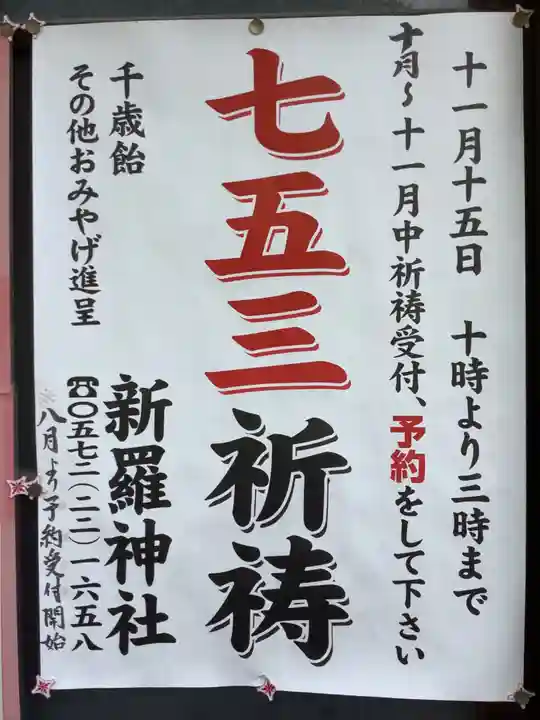 十一月十五日 十時より三時まで
十月〜十一月中祈祷受付、予約をして下さい
七五三祈祷
千歳飴
その他おみやげ進呈
新羅神社
☎〇五七二(二二)一六五八
※八月より予約受付開始